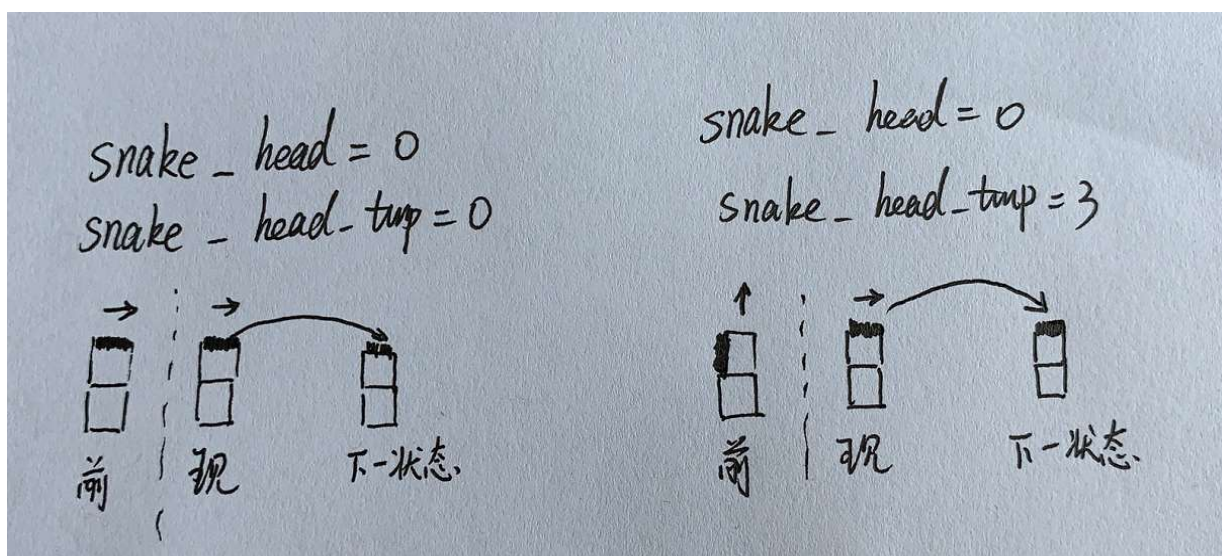 snake_head = 0
snake_head_tmp = 0
前 现 下一状态
snake_head = 0
snake_head_tmp = 3
前 现 下一状态